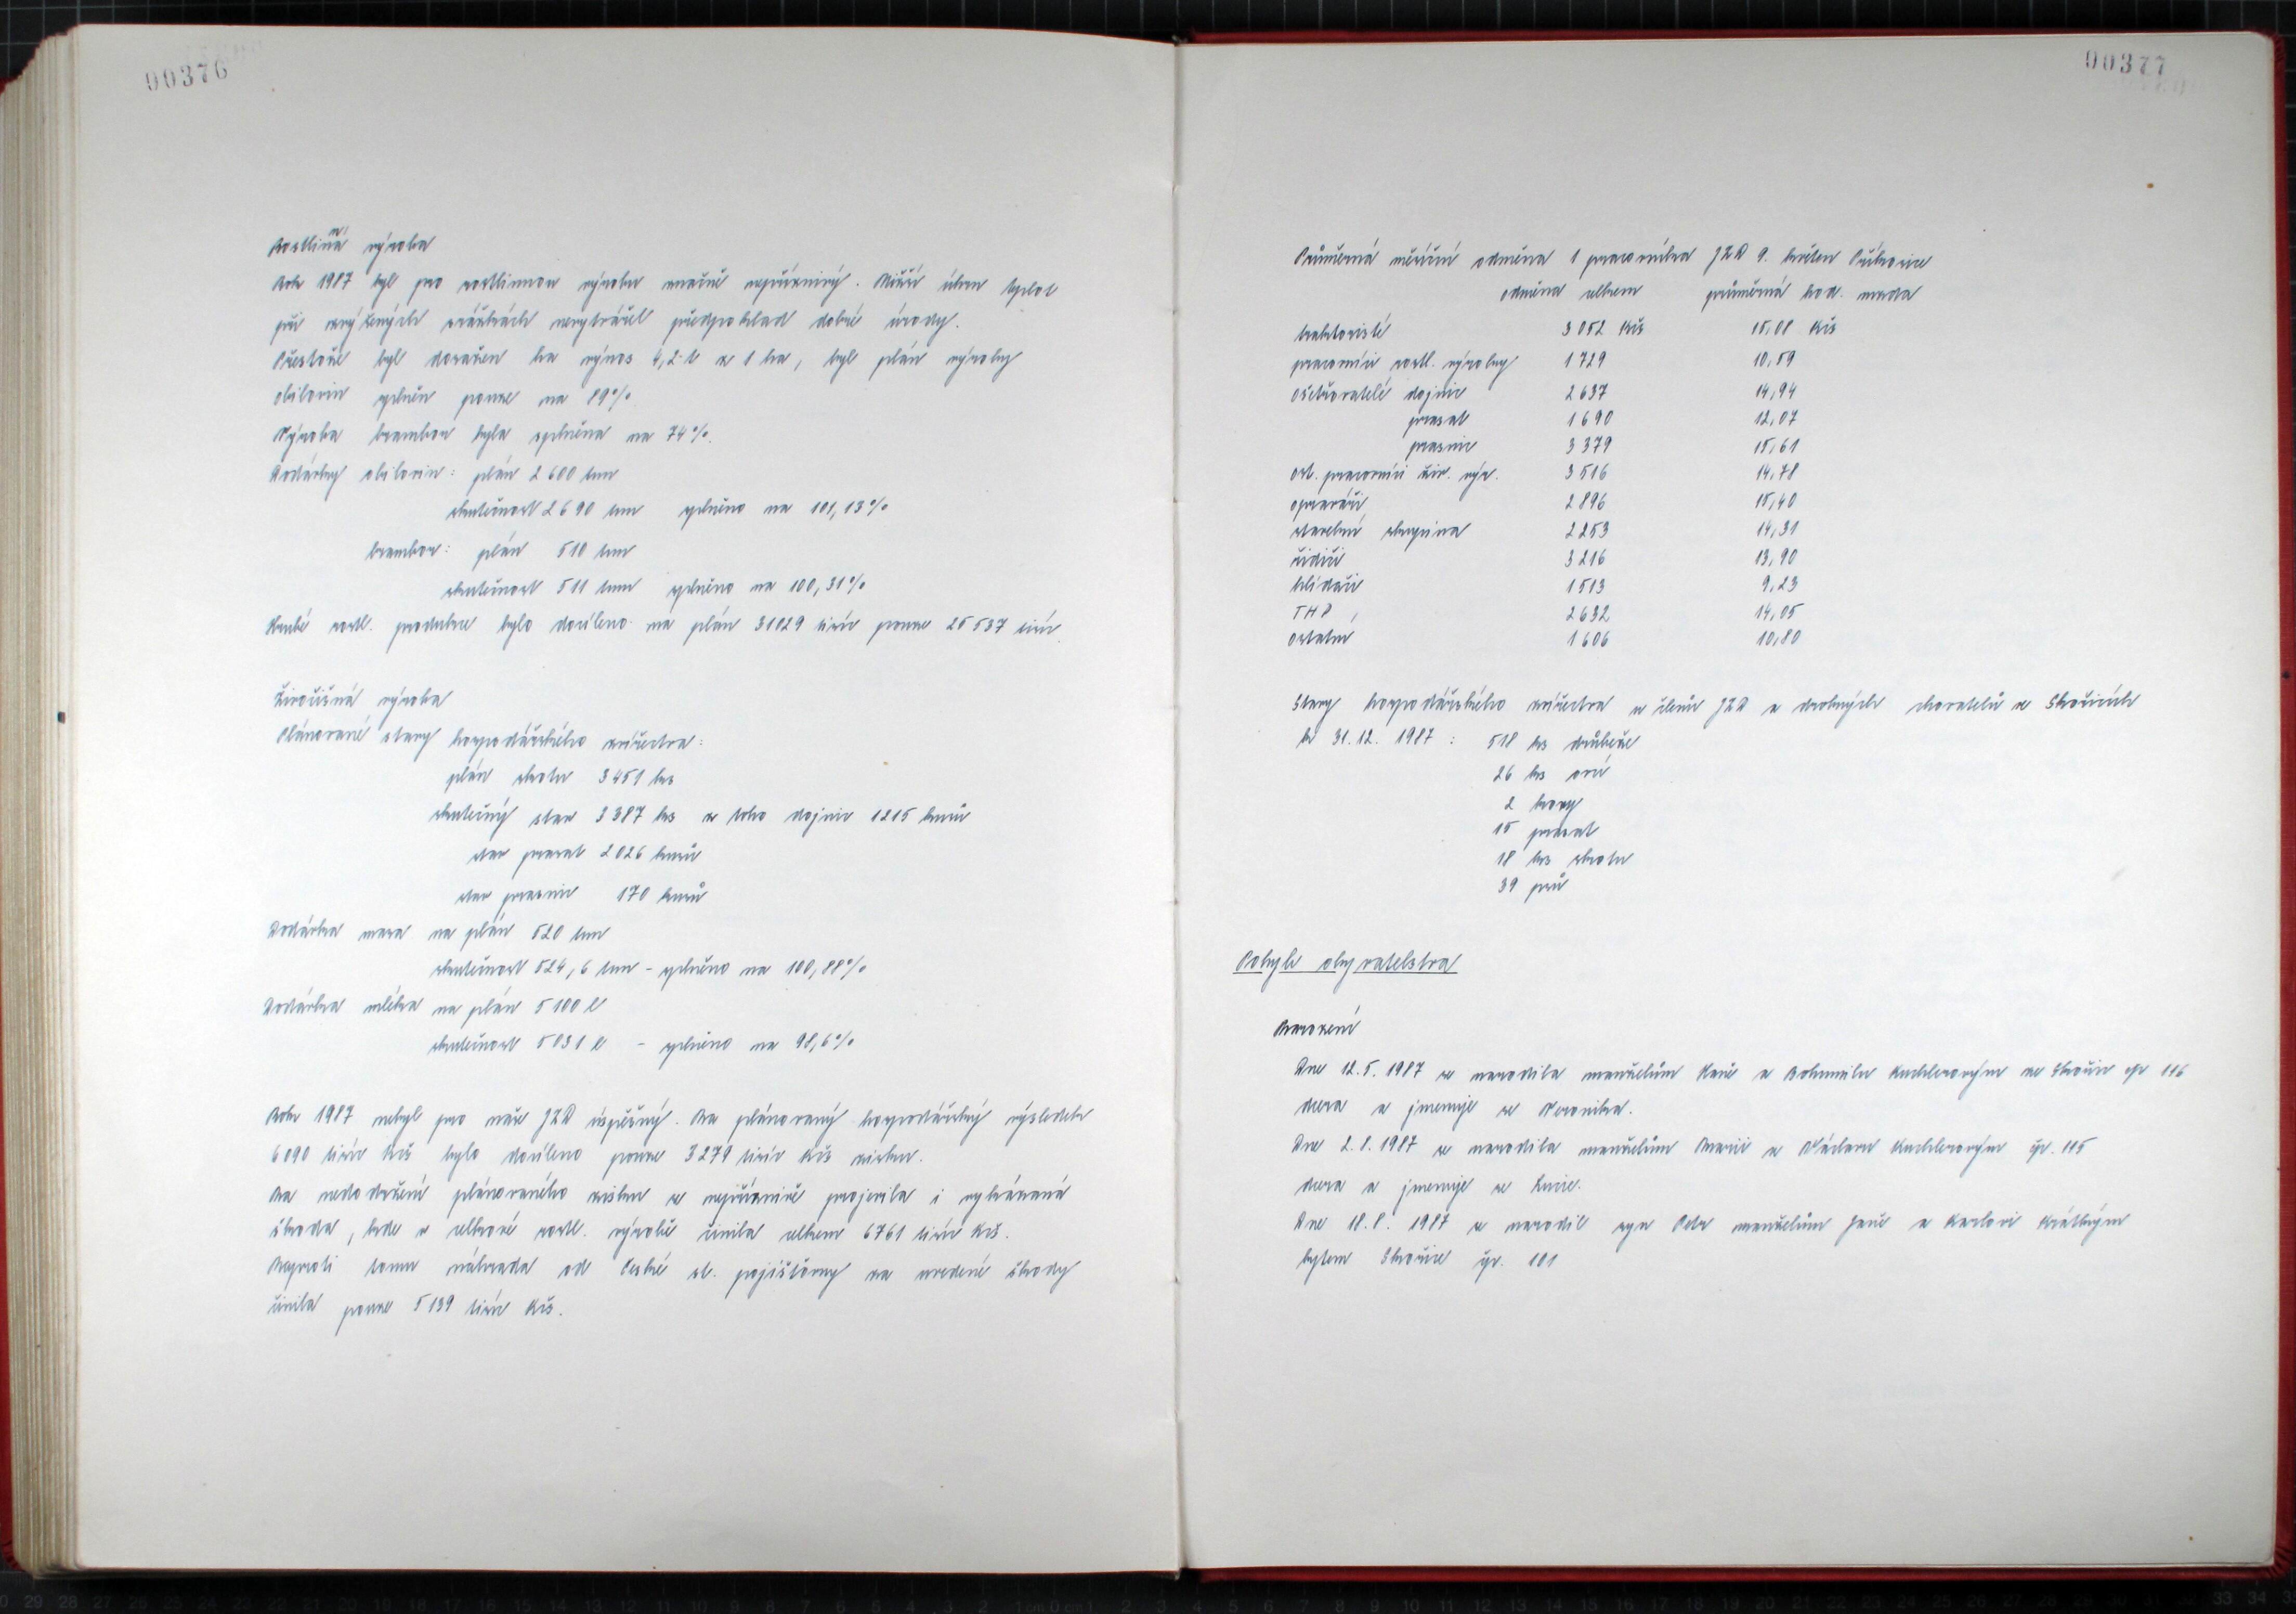 00376
Rostlinná výroba
Rok 1987 byl pro rostlinnou výrobu značně nepříznivý. Nižší úhrn teplot
při zvýšených srážkách nevytvářel předpoklad dobré úrody.
Přestože byl dosažen hа výnos 4,2 t z 1 ha, byl plán výroby
obilovin splněn pouze na 89%.
Výroba brambor byla splněna na 74%.
Dodávky obilovin: plán 2 600 tun
skutečnost 2 690 tun splněno na 101,13%
brambor: plán 510 tun
skutečnost 511 tun splněno na 100,31%
Hrubé rostl. produkce bylo docíleno na plán 31029 tisíc pouze 25 537 tisíc.
Živočišná výroba
Plánované stavy hospodářského zvířectva:
plán skotu 3 451 ks
skutečný stav 3 387 ks z toho dojnic 1215 kusů
stav prasat 2 026 kusů
stav prasnic 170 kusů
Dodávka masa na plán 520 tun
skutečnost 524,6 tun - splněno na 100,88%
Dodávka mléka na plán 5 100 l
skutečnost 5 031 l - splněno na 98,6%
Rok 1987 nebyl pro naše JZD úspěšný. Na plánovaný hospodářský výsledek
6 090 tisíc Kčs bylo docíleno pouze 3 279 tisíc Kčs zisku.
Na nedodržení plánovaného zisku se nepříznivě projevila i vykázaná
škoda, kde v celkové rostl. výrobě činila celkem 6761 tisíc Kčs.
Naproti tomu náhrada od České st. pojišťovny za uvedené škody
činila pouze 5 139 tisíc Kčs.
00377
Průměrná měsíční odměna 1 pracovníka JZD 9. květen Příkosice
odměna celkem průměrná hod. mzda
traktoristé 3 052 Kčs 15,08 Kčs
pracovníci rostl. výroby 1 729 10,59
ošetřovatelé dojnic 2 637 14,94
prasat 1 690 12,07
prasnic 3 379 15,61
ost. pracovníci živ. výr. 3 516 14,78
opraváři 2 896 15,40
stavební skupina 2 253 14,31
řidiči 3 216 13,90
hlídači 1 513 9,23
THP 2 632 14,05
ostatní 1 606 10,80
Stavy hospodářského zvířectva u členů JZD a drobných chovatelů ve Skořicích
k 31. 12. 1987 : 518 ks drůbeže
26 ks ovcí
2 kozy
15 prasat
18 ks skotu
39 psů
Pohyb obyvatelstva
Narození
Dne 12. 5. 1987 se narodila manželům Haně a Bohumilu Kuchlerovým ze Skořic čp 116
dcera a jmenuje se Veronika.
Dne 2. 8. 1987 se narodila manželům Marii a Václavu Kuchlerovým čp. 115
dcera a jmenuje se Lucie.
Dne 18. 8. 1987 se narodil syn Petr manželům Janě a Karlovi Krátkým
bytem Skořice čp. 101